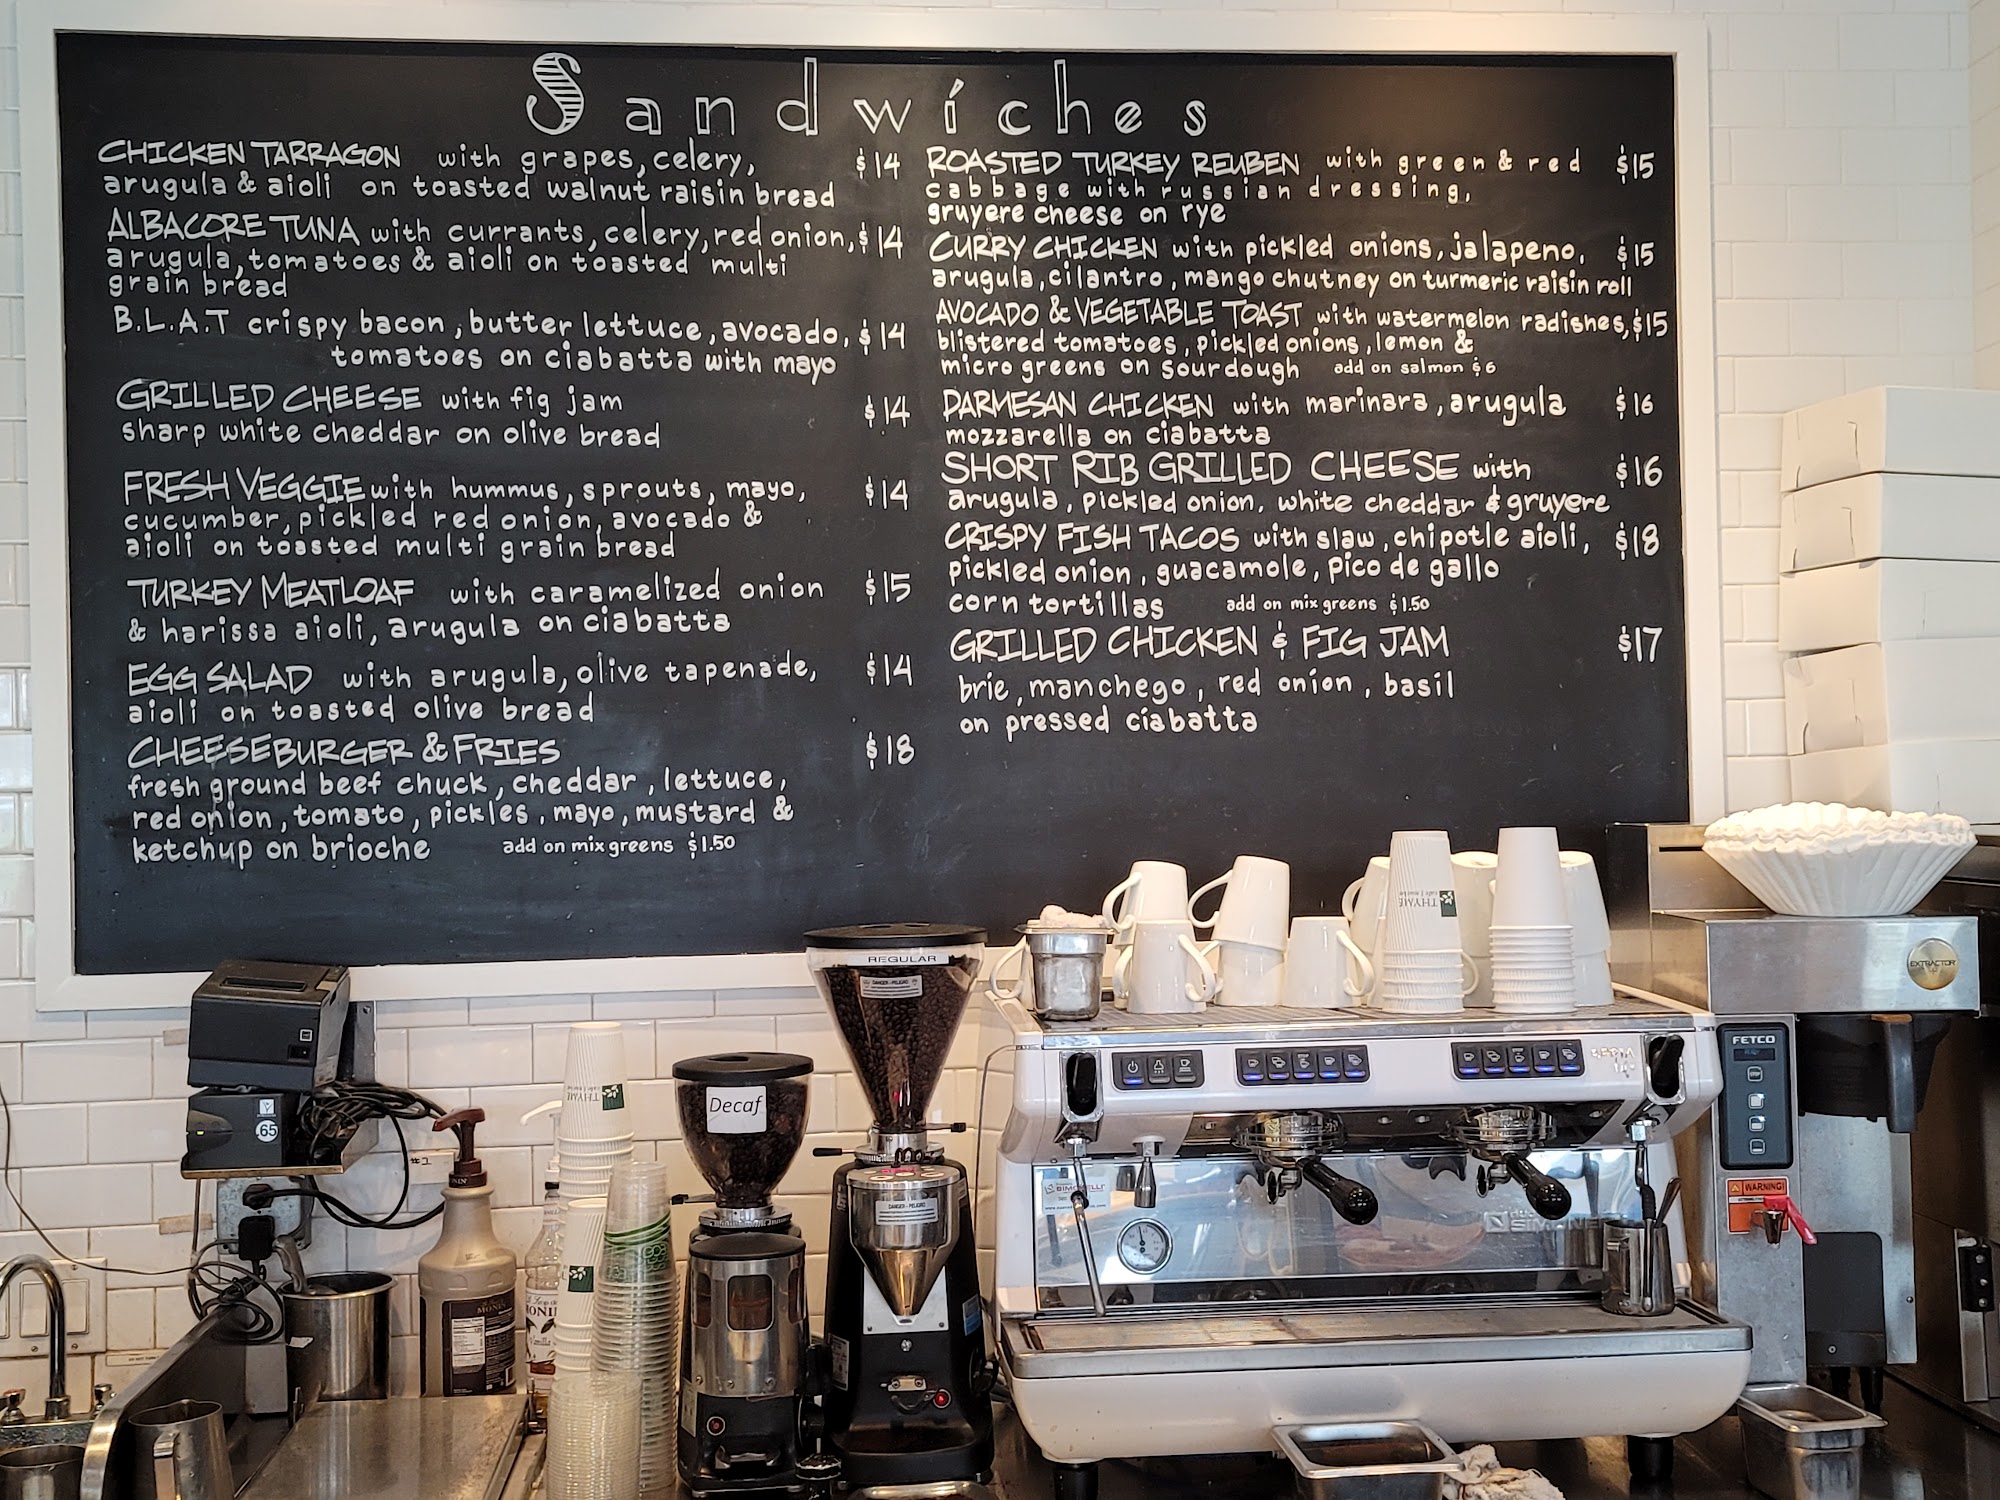 Sandwiches
CHICKEN TARRAGON with grapes, celery, $14
arugula & aioli on toasted walnut raisin bread
ALBACORE TUNA with currants, celery, red onion, $14
arugula, tomatoes & aioli on toasted multi
grain bread
B.L.A.T crispy bacon, butter lettuce, avocado, $14
tomatoes on ciabatta with mayo
GRILLED CHEESE with fig jam $14
sharp white cheddar on olive bread
FRESH VEGGIE with hummus, sprouts, mayo, $14
cucumber, pickled red onion, avocado &
aioli on toasted multi grain bread
TURKEY MEATLOAF with caramelized onion $15
& harissa aioli, arugula on ciabatta
EGG SALAD with arugula, olive tapenade, $14
aioli on toasted olive bread
CHEESEBURGER & FRIES $18
fresh ground beef chuck, cheddar, lettuce,
red onion, tomato, pickles, mayo, mustard &
ketchup on brioche add on mix greens $1.50
ROASTED TURKEY REUBEN with green & red $15
cabbage with russian dressing,
gruyere cheese on rye
CURRY CHICKEN with pickled onions, jalapeno, $15
arugula, cilantro, mango chutney on turmeric raisin roll
AVOCADO & VEGETABLE TOAST with watermelon radishes, $15
blistered tomatoes, pickled onions, lemon &
micro greens on sourdough add on salmon $6
PARMESAN CHICKEN with marinara, arugula $16
mozzarella on ciabatta
SHORT RIB GRILLED CHEESE with $16
arugula, pickled onion, white cheddar & gruyere
CRISPY FISH TACOS with slaw, chipotle aioli, $18
pickled onion, guacamole, pico de gallo
corn tortillas add on mix greens $1.50
GRILLED CHICKEN & FIG JAM $17
brie, manchego, red onion, basil
on pressed ciabatta
REGULAR
DANGER - PELIGRO
Decaf
DANGER - PELIGRO
THYME
THYME
EXTRACTOR
FETCO
WARNING!
65
MONIN